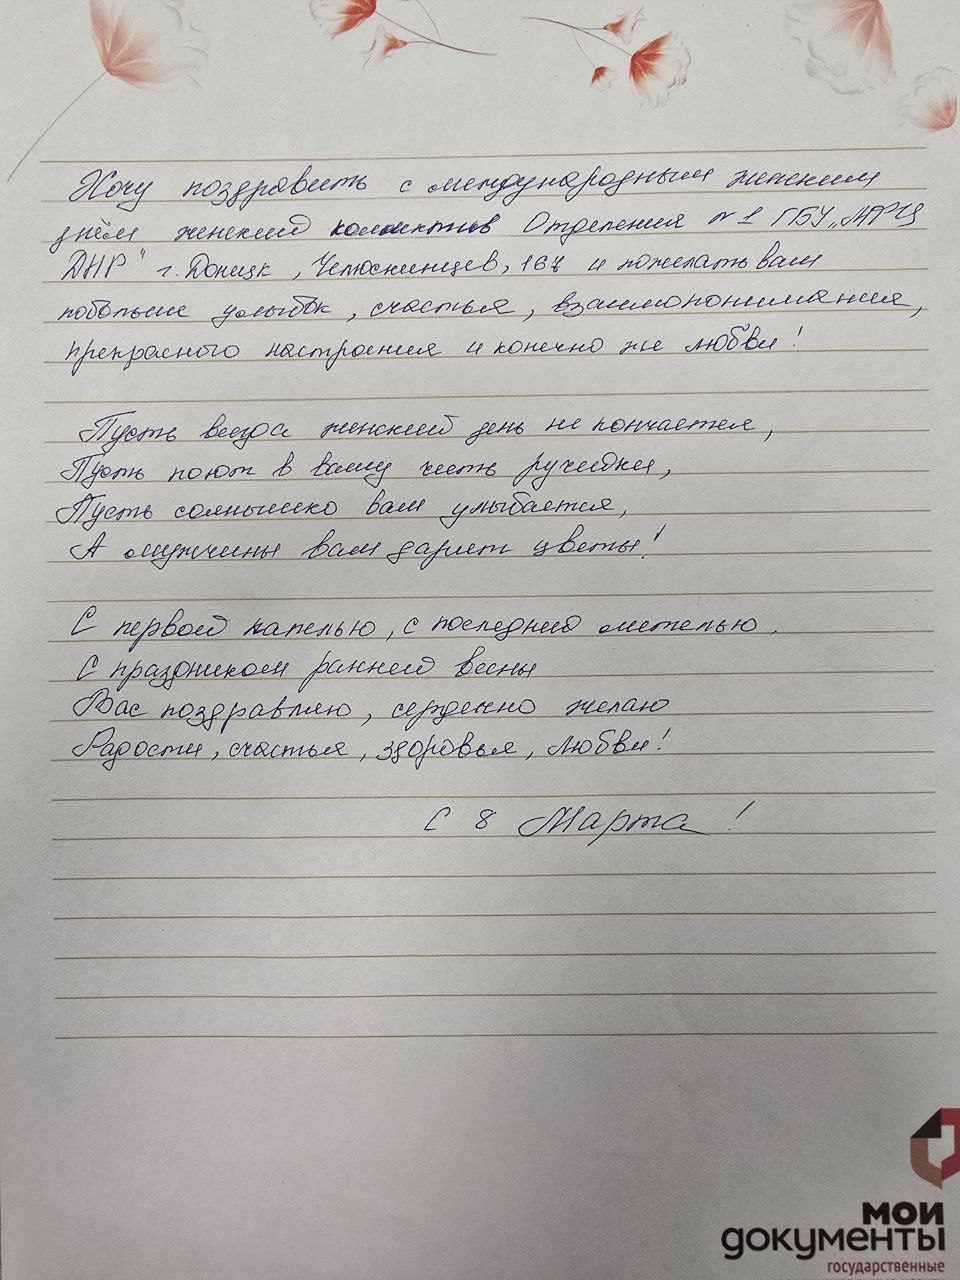 Хочу поздравить с международным женским
днём женский коллектив Отделения №1 ГБУ "МФЦ
ДНР" г. Донецк, Челюскинцев, 167 и пожелать вам
побольше улыбок, счастья, взаимопонимания,
прекрасного настроения и конечно же любви!
Пусть всегда женский день не кончается,
Пусть поют в вашу честь ручейки,
Пусть солнышко вам улыбается,
А мужчины вам дарят цветы!
С первой капелью, с последней метелью,
С праздником ранней весны
Вас поздравляю, сердечно желаю
Радости, счастья, здоровья, любви!
С 8 Марта!
мои
документы
государственные